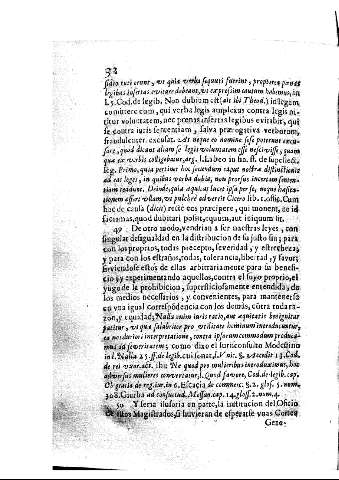 32
sidio tuti erunt, ut quia verba sequuti fuerint, propterea pœnas
legibus insertas evitare debeant, ut expressim cautum habemus, in
l. 5. Cod. de legib. Non dubium est (ait ibi Theod.) in legem
comittere eum, qui verba legis amplexus contra legis ni-
titur voluntatem, nec pœnas insertas legibus evitabit, qui
se contra iuris sententiam, salva prærogativa verborum,
fraudulenter excusat. Adt neque eo nomine sese poterunt excu-
sare, quod dicant aliam se legis voluntatem esse nescivisse, quam
qua ex verbis colligebatur, arg. l. Labeo in ho. ff. de supellect.
leg. Primo, quia pertinet hoc secundum caput nostræ distinctionis
ad eas leges, in quibus verba dubia, non prorsus incertam senten-
tiam reddunt. Deinde, quia æquitas lucet ipsa per se, neque habita-
tionem affert ullam, ut pulchrè advertit Cicero lib. 1. offic. Cum
hac de causa (dicit) rectè eos præcipere, qui monent, ne id
faciamus, quod dubitari possit, æquum, aut iniquum sit.
49 De otro modo, vendrian a ser nuestras leyes, con
singular desigualdad en la distribucion de su justo fin; para
con los proprios, todas precepto, severidad, y estrecheza;
y para con los estraños, todas, tolerancia, libertad, y favor;
sirviendose estos de ellas arbitrariamente para su benefi-
cio, y experimentando aquellos, contra el suyo proprio, el
yugo de la prohibicion, supersticiosamente entendida, de
los medios necessarios, y convenientes, para mantenerse
en una igual correspondencia con los demàs, contra toda ra-
zon, y equidad; Nulla enim iuris ratio, aut æquitatis benignitas
patitur, ut quæ salubriter pro utilitate hominum introducuntur,
ea nos duriori interpretatione, contra ipsorum commodum produca-
mus ad severitatem; como dixo el Iurisconsulto Modestino
in l. Nulla 25. ff. de legib. cui sonat, l. Vnic. §. accedit 13. Cod.
de rei uxor. act. ibi: Ne quod pro mulieribus introducimus, hoc
adversus mulieres convertatur, l. Quod favore, Cod. de legib. cap.
Ob gratia de reg. iur. in 6. Escacia de commerc. §. 2. glos. 5. num.
308. Giurba ad consuetud. Messan. cap. 14. glos. 2. num. 4.
50 Y seria ilusoria en parte, la institucion del Oficio
de estos Magistrados, si huvieran de esperarse unas Cortes
Gene-